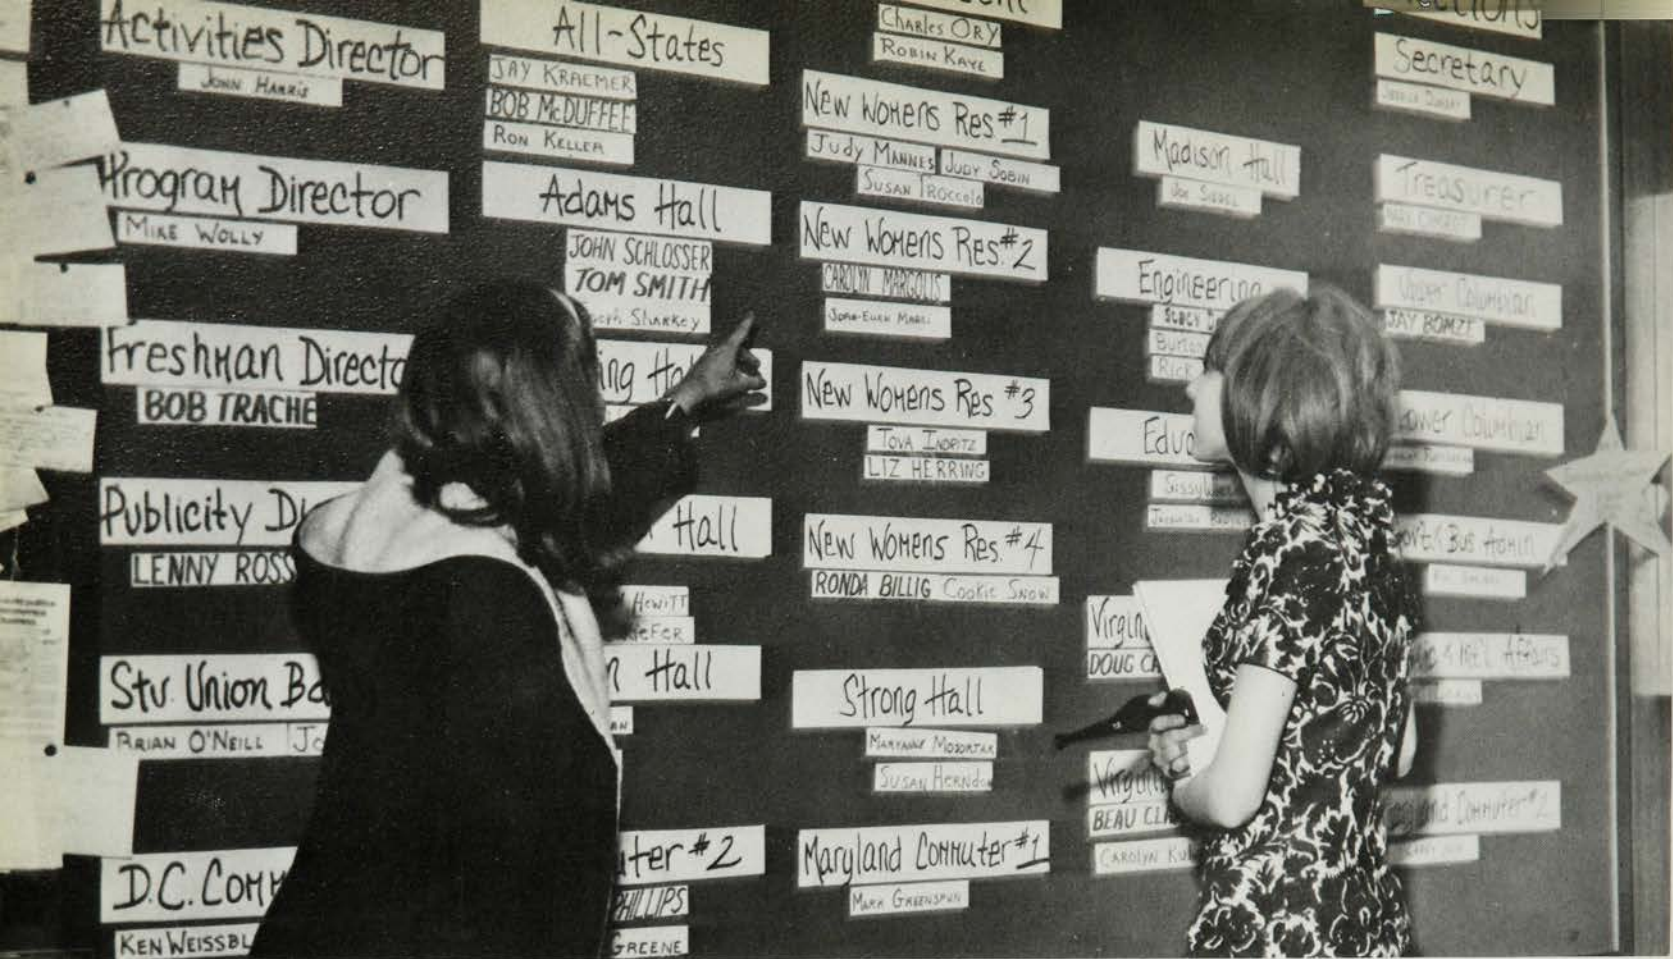 Activities Director
John Harris
Program Director
Mike Wolly
Freshman Directo
BOB TRACHE
Publicity Di
LENNY ROSS
Stu. Union Bo
BRIAN O'NEILL Jo
D.C. Comm
KEN WEISSBL
All-States
JAY KRAEMER
BOB McDUFFEE
RON KELLER
Adams Hall
JOHN SCHLOSSER
TOM SMITH
Sharkey
ing Hal
Hall
HEWITT
iefer
n Hall
AN
uter #2
PHILLIPS
GREENE
Charles ORY
ROBIN KAYE
New Womens Res #1
Judy MANNES JUDY SOBIN
SUSAN TROCCOLO
New Womens Res. #2
CAROLYN MARGOLIS
New Womens Res #3
TOVA INDRITZ
LIZ HERRING
New Womens Res. #4
RONDA BILLIG Cookie Snow
Strong Hall
SUSAN HERNDON
Maryland Commuter #1
MARK GREENSPUN
Madison Hall
Engineering
Burton
Rick
Educ
Sissy
Virgin
DOUG CA
Virgini
BEAU CLA
CAROLYN KU
Secretary
Treasurer
Upper Columbian
JAY BOMZE
Lower Columbian
Gov't & Bus Admin
Int'l Affairs
Maryland Commuter #2